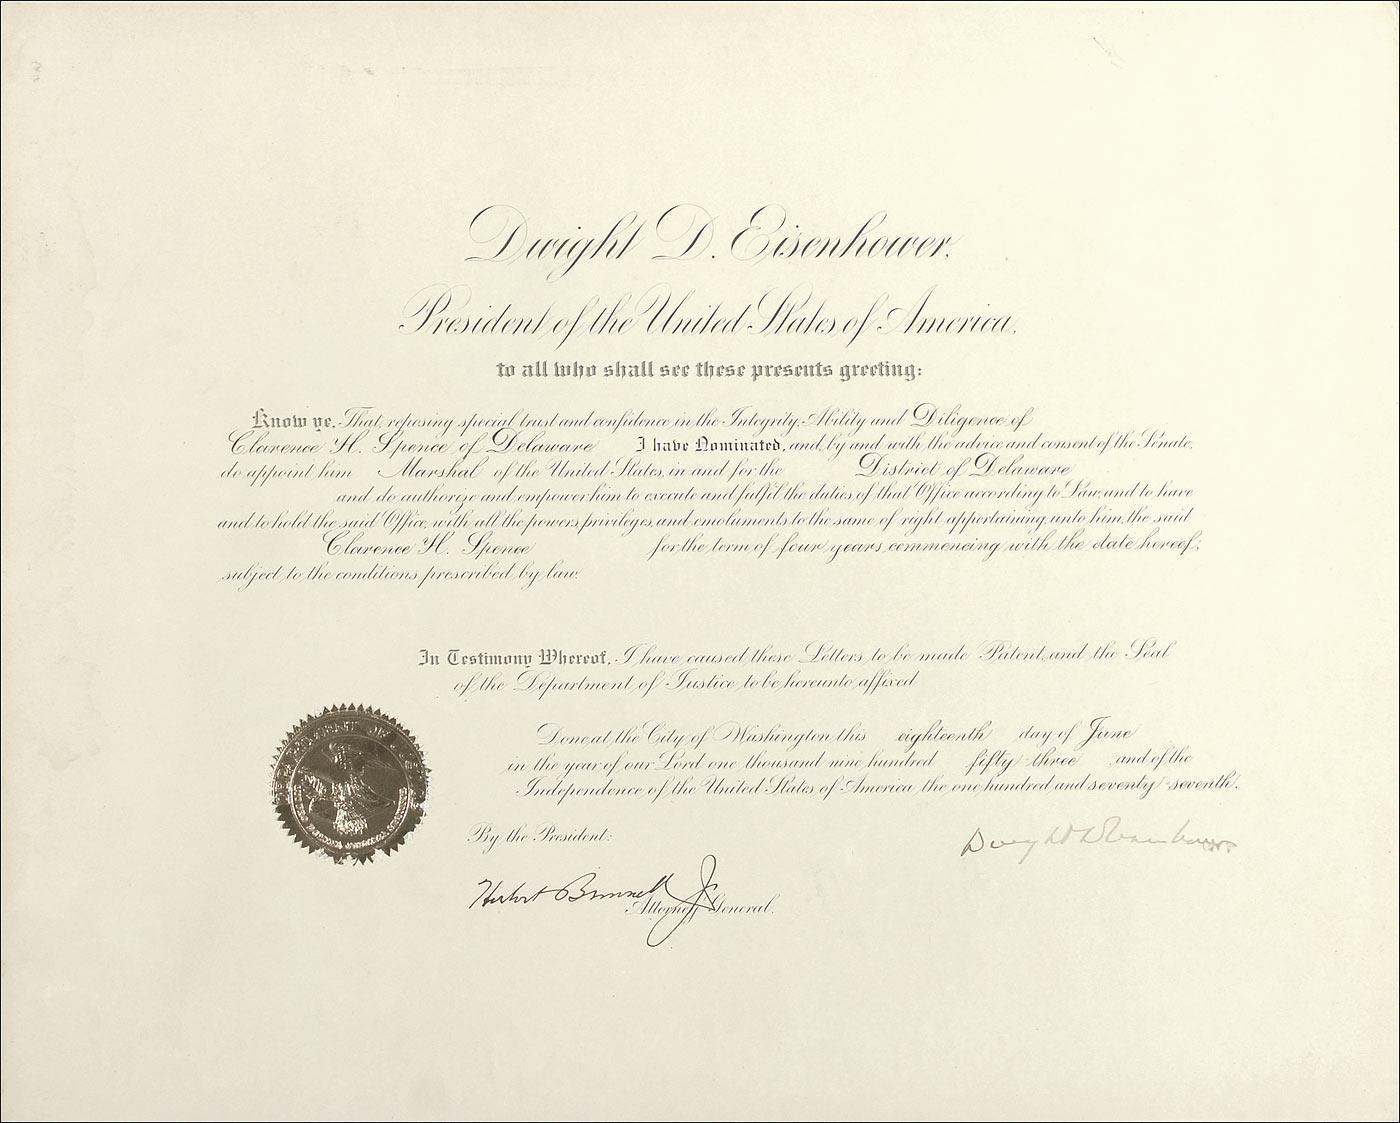 Dwight D. Eisenhower,
President of the United States of America,
to all who shall see these presents greeting:
Know ye, That, reposing special trust and confidence in the Integrity, Ability and Diligence of
Clarence H. Spence of Delaware I have Nominated, and, by and with the advice and consent of the Senate,
do appoint him Marshal of the United States, in and for the District of Delaware
and do authorize and empower him to execute and fulfil the duties of that Office according to Law, and to have
and to hold the said Office, with all the powers, privileges, and emoluments to the same of right appertaining, unto him, the said
Clarence H. Spence for the term of four years, commencing with the date hereof,
subject to the conditions prescribed by law.
In Testimony Whereof, I have caused these Letters to be made Patent, and the Seal
of the Department of Justice to be hereunto affixed
Done at the City of Washington this eighteenth day of June
in the year of our Lord one thousand nine hundred fifty-three and of the
Independence of the United States of America the one hundred and seventy-seventh.
By the President:
Dwight D Eisenhower
Herbert Brownell Jr
Attorney General.